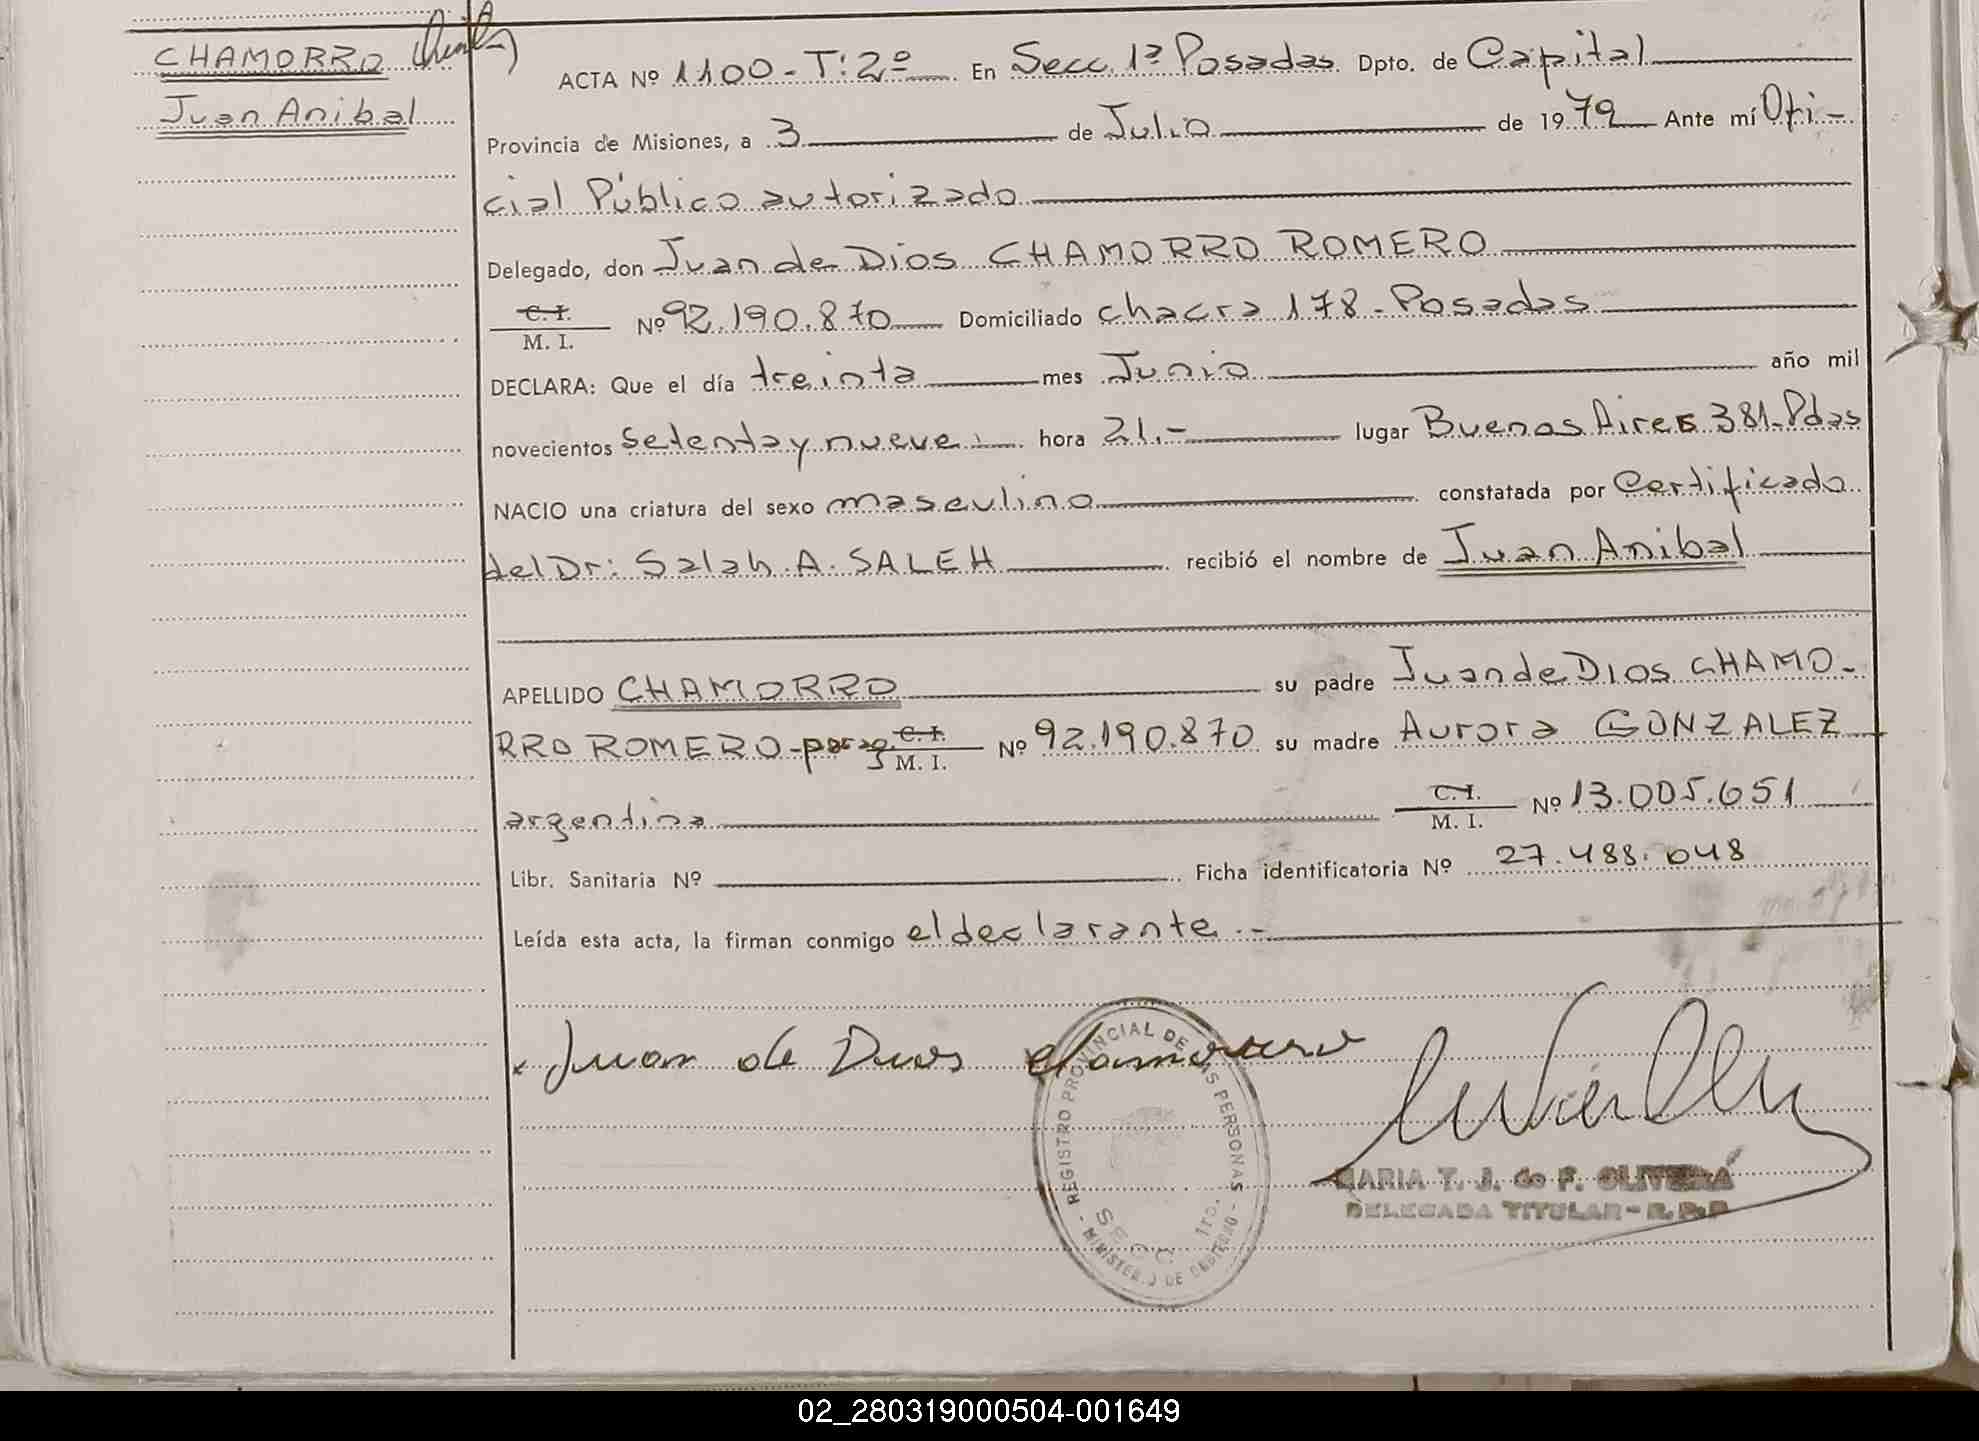 CHAMORRO
Juan Anibal
ACTA Nº 1100-T:2º En Secc. 1ª Posadas Dpto. de Capital
Provincia de Misiones, a 3 de Julio de 1979 Ante mí Ofi-
cial Público autorizado
Delegado, don Juan de Dios CHAMORRO ROMERO
C.I.
M. I. Nº 92.190.870 Domiciliado chacra 178-Posadas
DECLARA: Que el día treinta mes Junio año mil
novecientos setenta y nueve hora 21.- lugar Buenos Aires 381-Pdas
NACIO una criatura del sexo masculino constatada por Certificado
del Dr: Salah A. SALEH recibió el nombre de Juan Anibal
APELLIDO CHAMORRO su padre Juan de Dios CHAMO-
RRO ROMERO-parag. C.I. M. I. Nº 92.190.870 su madre Aurora GONZALEZ
argentina C.I. M. I. Nº 13.005.651
Libr. Sanitaria Nº Ficha identificatoria Nº 27.488.048
Leída esta acta, la firman conmigo el declarante.-
Juan de Dios Chamorro
REGISTRO PROVINCIAL DE LAS PERSONAS
SECC. 1ro.
MINISTERIO DE GOBIERNO
MARIA T. J. de F. OLIVERA
DELEGADA TITULAR-R.P.P
02_280319000504-001649